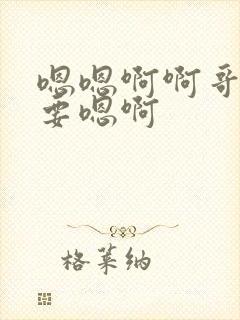 嗯嗯啊啊哥
要嗯啊
格莱纳